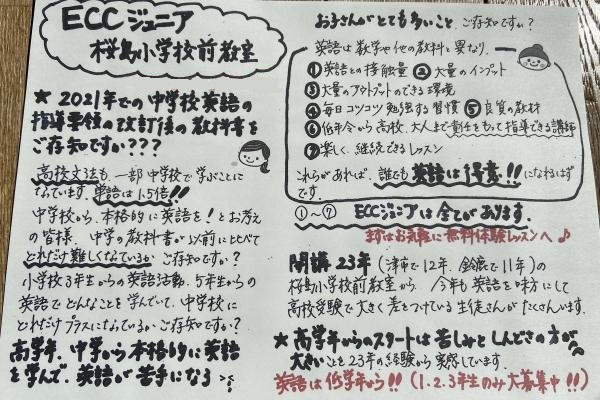 ECCジュニア
桜島小学校前教室
★ 2021年での中学校英語の
指導要領の改訂後の教科書を
ご存知ですか???
高校文法も、一部中学校で学ぶことに
なっています。単語は1.5倍!!
中学校から、本格的に英語を!とお考え
の皆様、中学の教科書が以前に比べて
どれだけ難しくなっているか ご存知ですか?
小学校3年生からの英語活動、5年生からの
英語でどんなことを学んでいて、中学校に
どれだけプラスになっているか ご存知ですか?
高学年、中学から本格的に英語
を学んで、英語が苦手になる
お子さんがとても多いこと、ご存知ですか?
英語は数学や他の教科と異なり、
①英語との接触量 ②大量のインプット
③大量のアウトプットのできる環境
④毎日コツコツ勉強する習慣 ⑤良質の教材
⑥低年令から高校、大人まで責任をもって指導できる講師
⑦楽しく、継続できるレッスン
これらがあれば、誰でも英語は得意!!になれるはず
です。
①~⑦ ECCジュニアは全てがあります。
まずはお気軽に無料体験レッスンへ♪
開講23年(津市で12年、鈴鹿で11年)の
桜島小学校前教室から、今年も英語を味方にして
高校受験で大きく差をつけている生徒さんがたくさんいます。
★高学年からのスタートは苦しみとしんどさの方が
大きいことを23年の経験から実感しています。
英語は低学年から!!(1.2.3年生のみ大募集中!!)